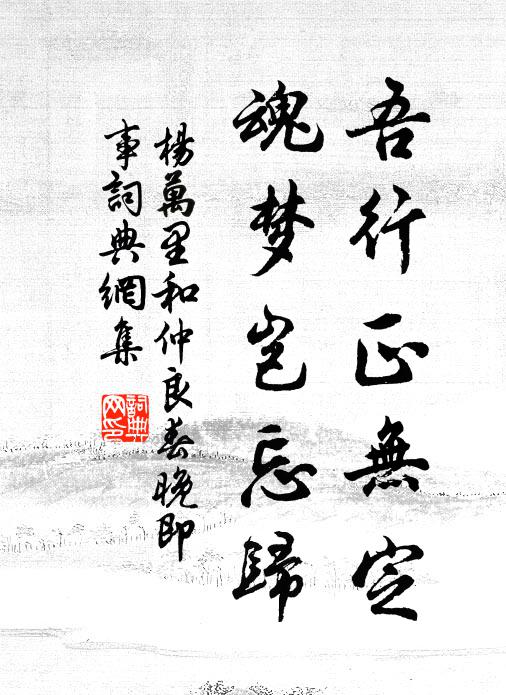 吾行正無定
魂梦岂忘歸
楊萬里和仲良春晚即
事詞典網集
詞典
网印